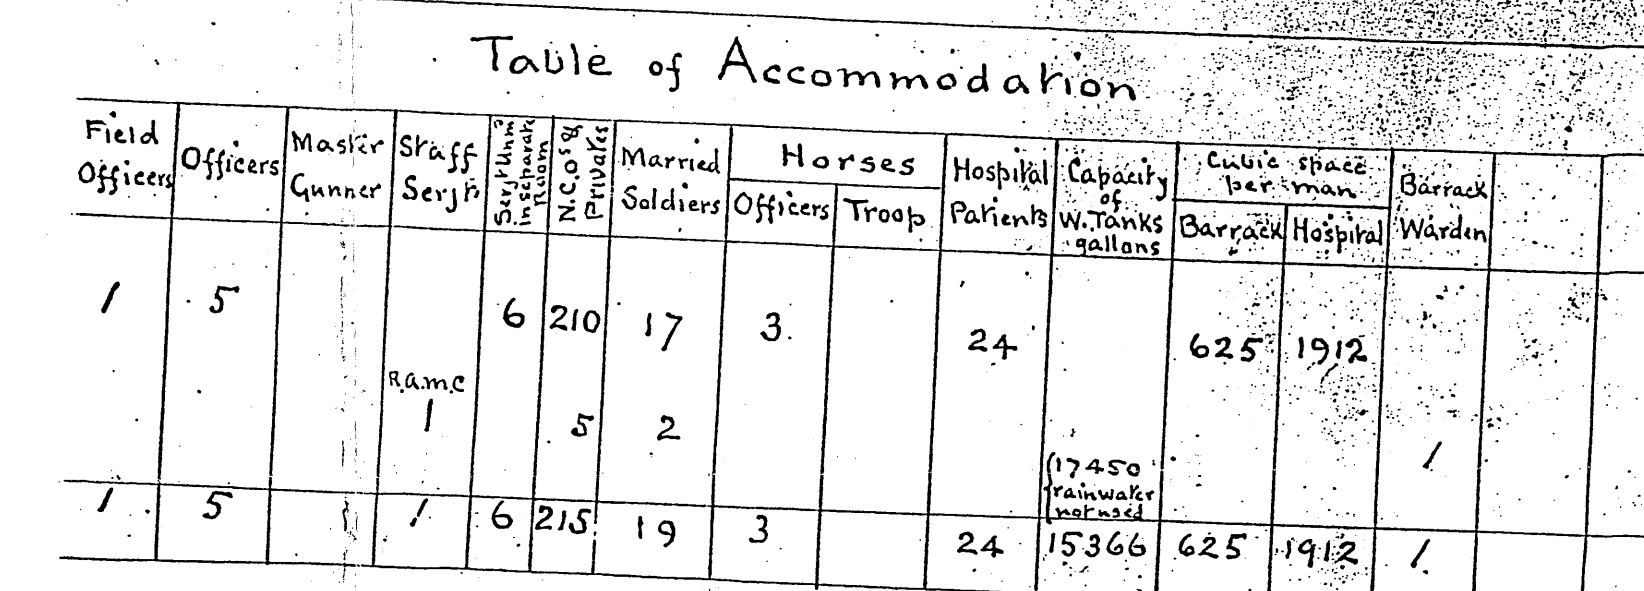 Table of Accommodation
Field Officers
Officers
Master Gunner
Staff Serjts
Serjt Unmd in separate Room
N.C.Os & Privates
Married Soldiers
Horses
Officers
Troop
Hospital Patients
Capacity of W. Tanks gallons
Cubic space per man
Barrack
Hospital
Barrack Warden
1 5 6 210 17 3. 24 625 1912
R.A.M.C
1 5 2 1
17450
rainwater
not used
1 5 1 6 215 19 3 24 15366 625 1912 1